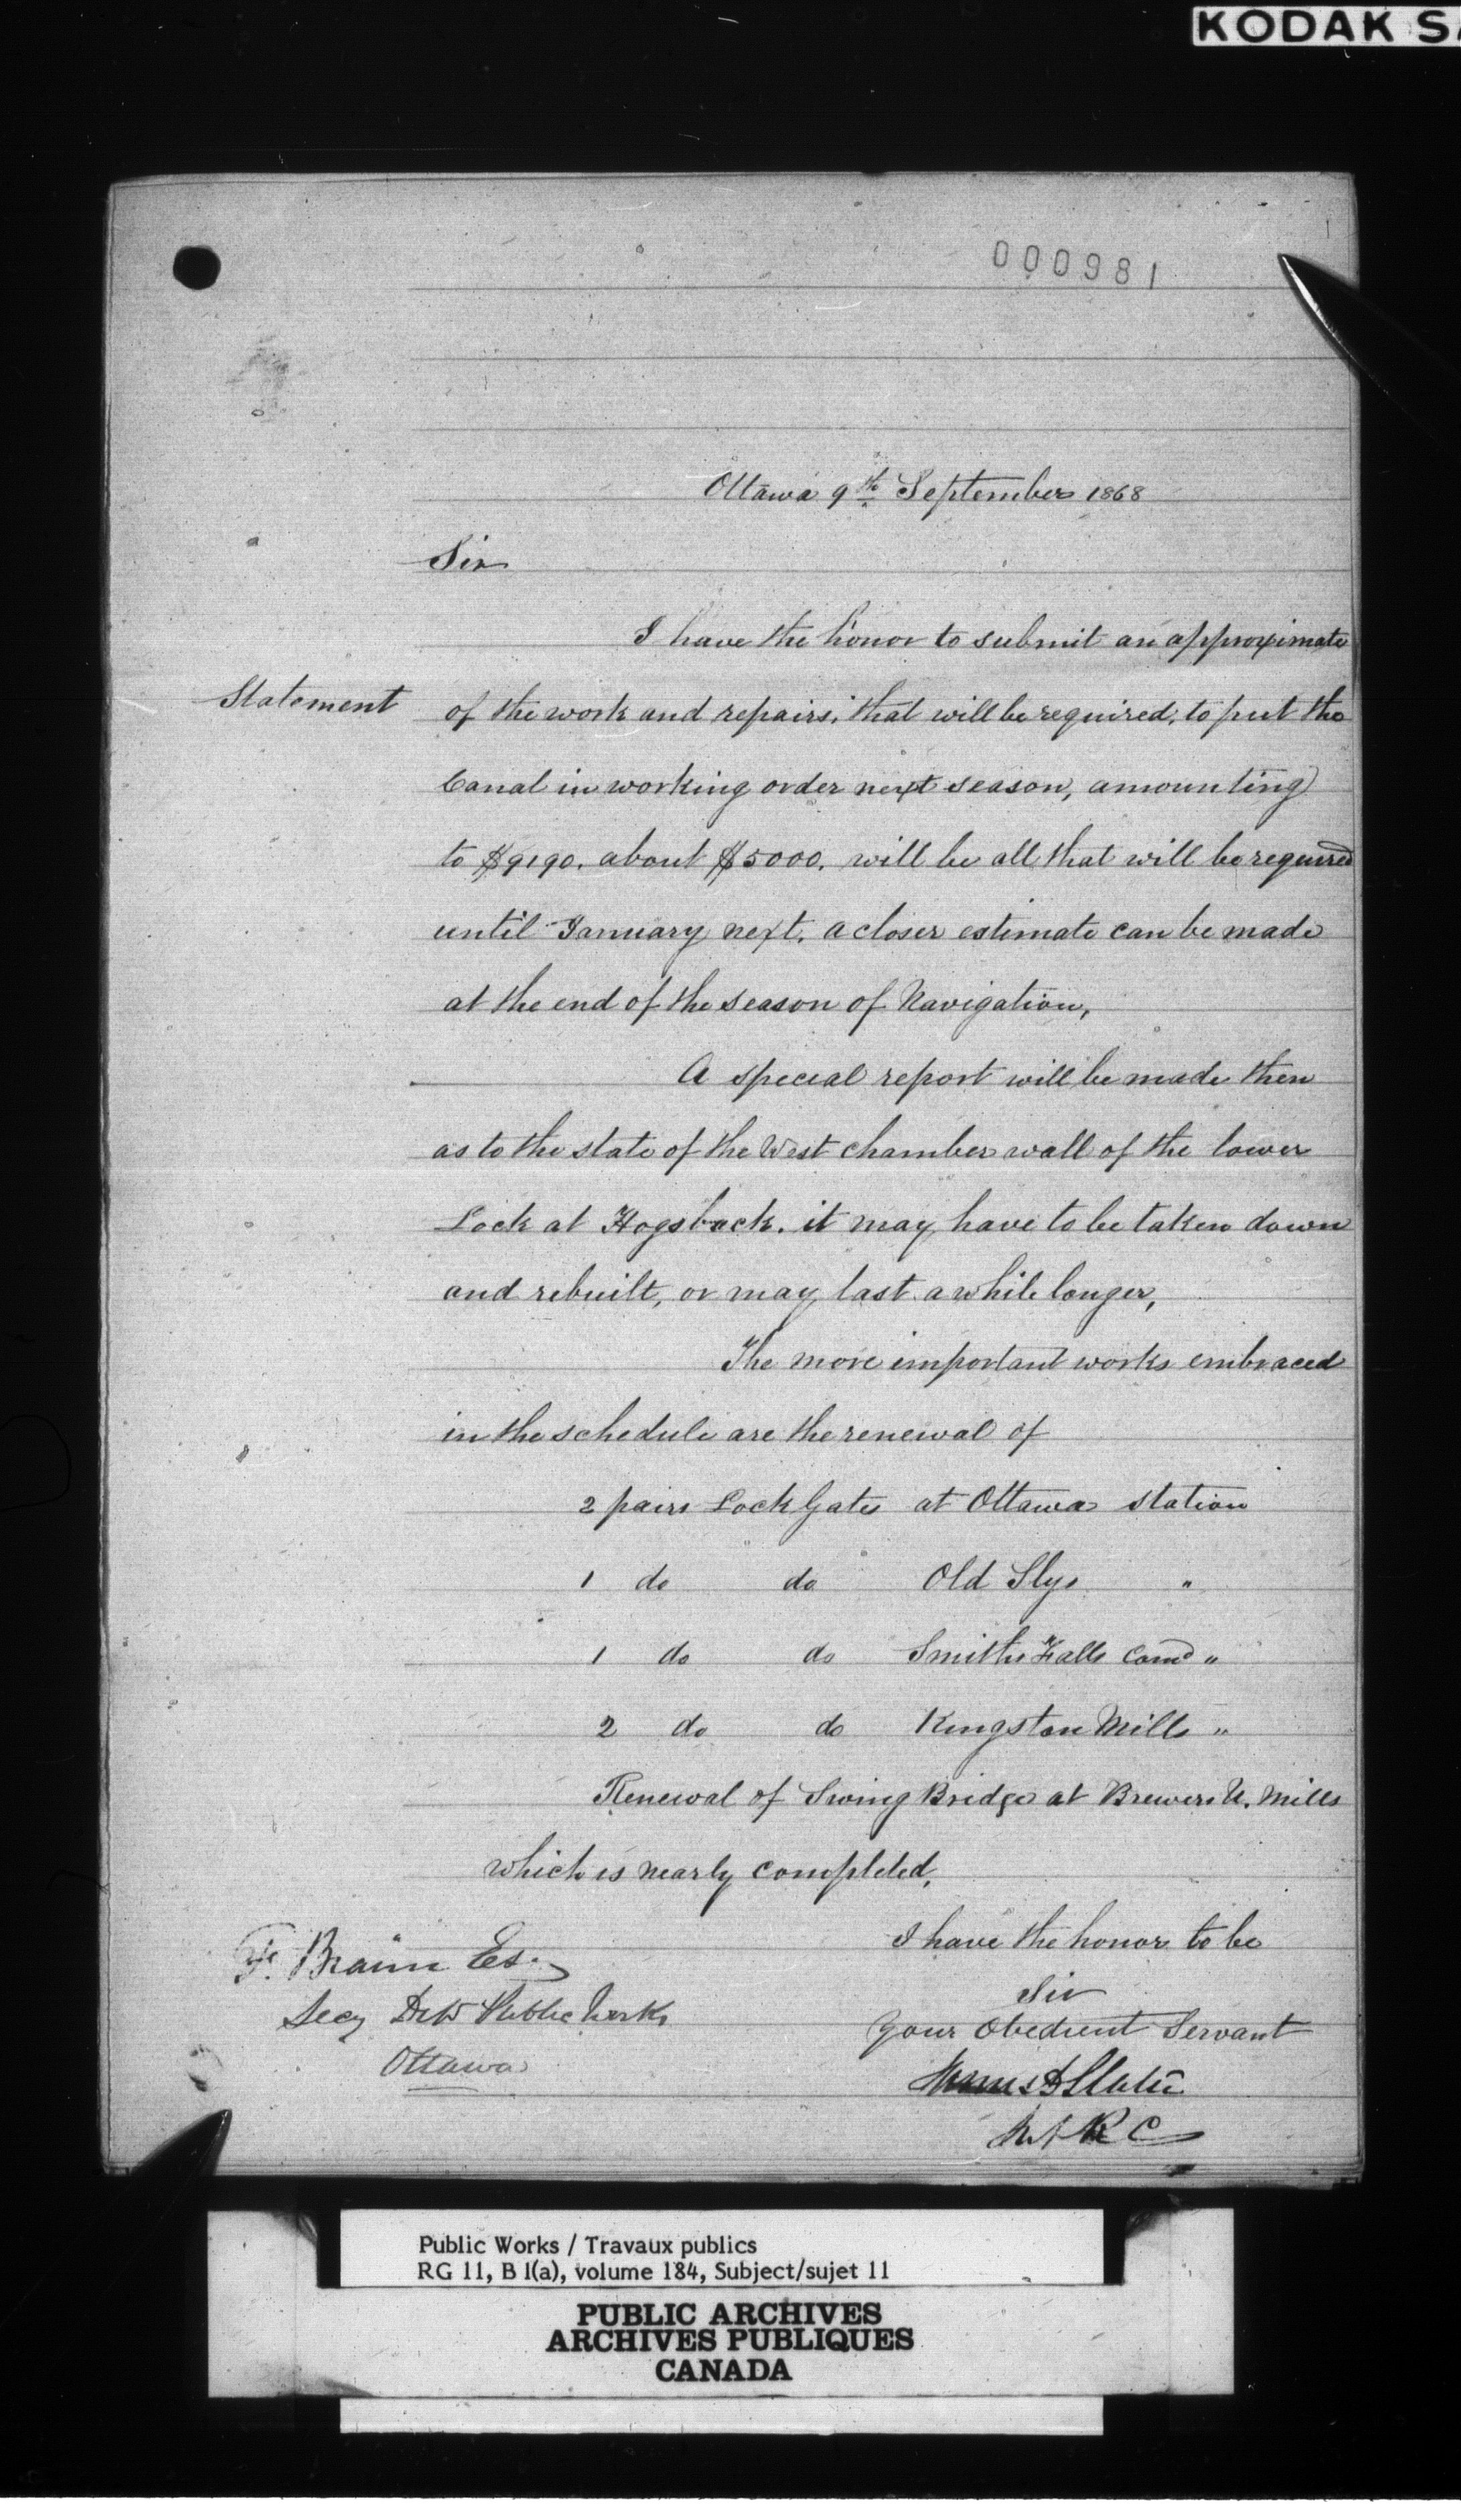 KODAK SA
000981
Ottawa 9th September 1868
Sir
I have the honor to submit an approximate
Statement
of the work and repairs, that will be required, to put the
Canal in working order next season, amounting
to $9190. about $5000. will be all that will be required
until January next. a closer estimate can be made
at the end of the season of Navigation,
A special report will be made then
as to the state of the West chamber wall of the lower
Lock at Hogsback. it may have to be taken down
and rebuilt, or may last a while longer,
The more important works embraced
in the schedule are the renewal of
2 pairs Lock Gates at Ottawa station
1 do do Old Slys "
1 do do Smiths Falls Comd "
2 do do Kingston Mills "
Renewal of Swing Bridge at Brewers U. Mills
which is nearly completed,
I have the honor to be
Sir
Your Obedient Servant
James D Slater
R C
F. Braun Es.
Secy Public Works
Ottawa
Public Works / Travaux publics
RG 11, B 1(a), volume 184, Subject/sujet 11
PUBLIC ARCHIVES
ARCHIVES PUBLIQUES
CANADA